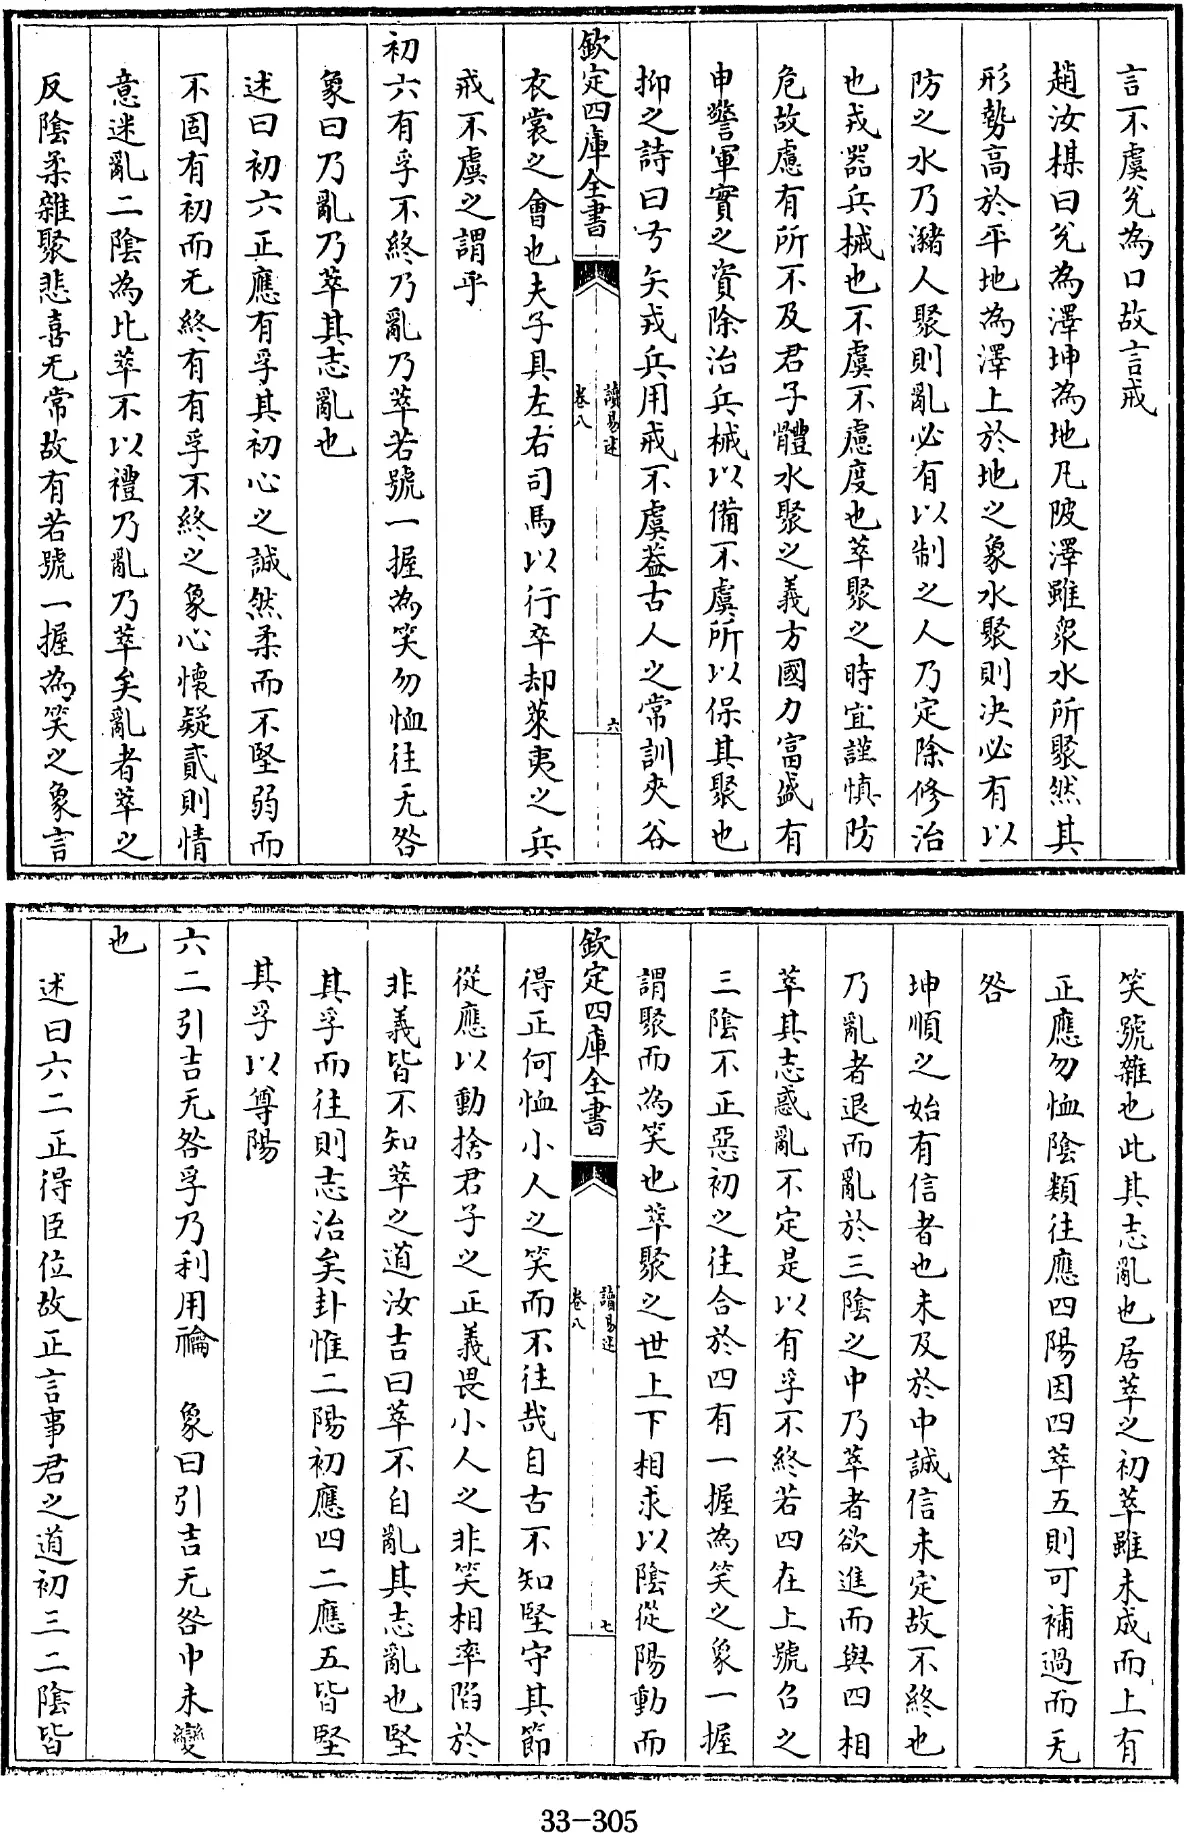 言不虞兊為口故言戒
趙汝楳曰兊為澤坤為地凡陂澤雖衆水所聚然其
形勢高於平地為澤上於地之象水聚則决必有以
防之水乃瀦人聚則亂必有以制之人乃定除修治
也戎器兵械也不虞不慮度也萃聚之時宜謹慎防
危故慮有所不及君子體水聚之義方國力富盛有
申警軍實之資除治兵械以備不虞所以保其聚也
抑之詩曰弓矢戎兵用戒不虞葢古人之常訓夾谷
欽定四庫全書
讀易述
卷八
六
衣裳之會也夫子具左右司馬以行卒却萊夷之兵
戒不虞之謂乎
初六有孚不終乃亂乃萃若號一握為笑勿恤往无咎
象曰乃亂乃萃其志亂也
述曰初六正應有孚其初心之誠然柔而不堅弱而
不固有初而无終有有孚不終之象心懷疑貳則情
意迷亂二陰為比萃不以禮乃亂乃萃矣亂者萃之
反陰柔雜聚悲喜无常故有若號一握為笑之象言
笑號雜也此其志亂也居萃之初萃雖未成而上有
正應勿恤陰類往應四陽因四萃五則可補過而无
咎
坤順之始有信者也未及於中誠信未定故不終也
乃亂者退而亂於三陰之中乃萃者欲進而與四相
萃其志惑亂不定是以有孚不終若四在上號召之
三陰不正惡初之往合於四有一握為笑之象一握
謂聚而為笑也萃聚之世上下相求以陰從陽動而
欽定四庫全書
讀易述
卷八
七
得正何恤小人之笑而不往哉自古不知堅守其節
從應以動捨君子之正義畏小人之非笑相率陷於
非義皆不知萃之道汝吉曰萃不自亂其志亂也堅
其孚而往則志治矣卦惟二陽初應四二應五皆堅
其孚以尊陽
六二引吉无咎孚乃利用禴 象曰引吉无咎中未變
也
述曰六二正得臣位故正言事君之道初三二陰皆
33-305